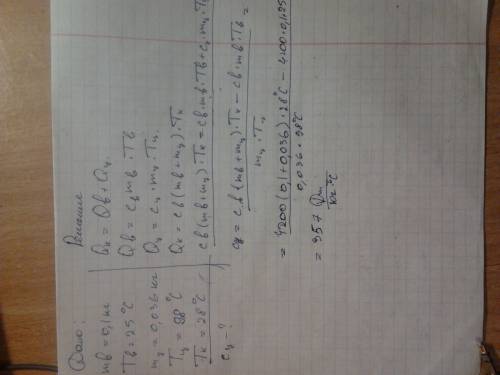 Дано:
mв = 0,1 кг
Tв = 25 °C
mц = 0,036 кг
Tц = 98 °C
Tк = 28 °C
cц - ?
Решение
Qк = Qв + Qц
Qв = cв mв · Tв
Qц = cц · mц · Tц
Qк = cв (mв + mц) · Tк
cв (mв + mц) · Tк = cв · mв · Tв + cц · mц · T
cц = cв (mв + mц) · Tк − cв · mв · Tв =
mц · Tц
= 4200 (0,1 + 0,036) · 28 °C − 4200 · 0,1 · 25
0,036 · 98 °C
= 957 Дж
кг °C